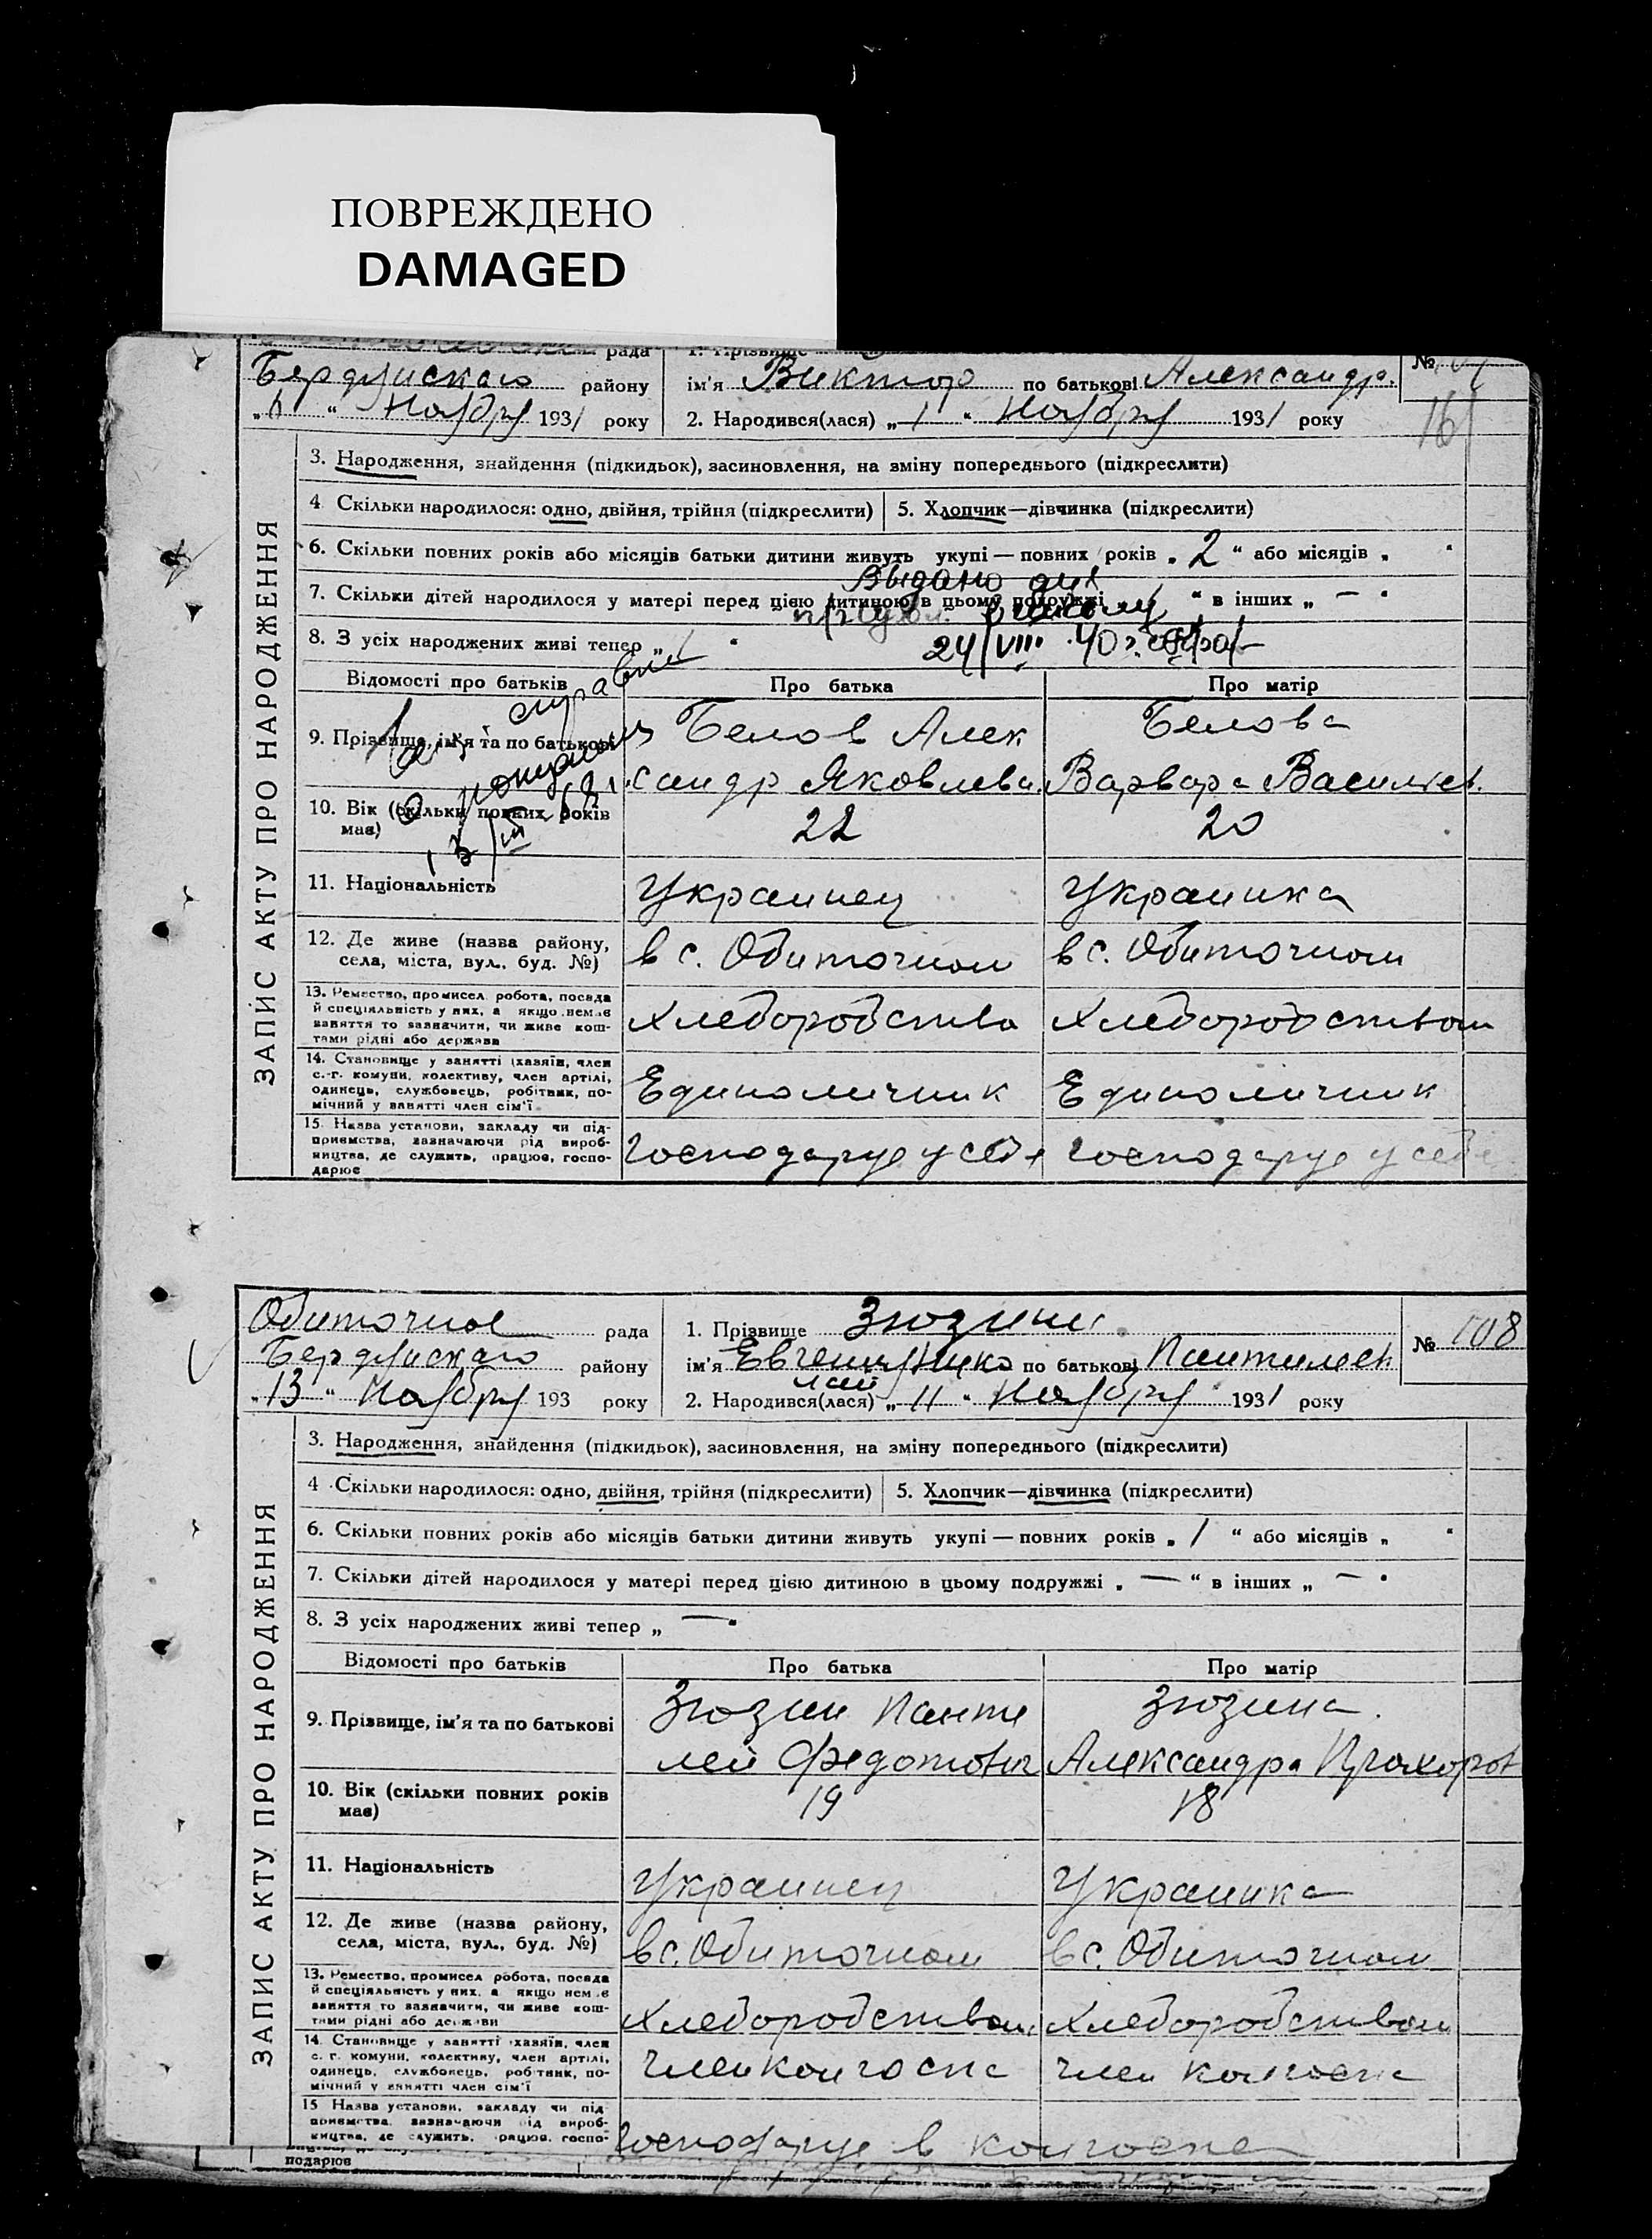 ПОВРЕЖДЕНО
DAMAGED
рада
1. Прізвище
№
Бердянскаго району
ім'я Виктор по батькові Александр.
Ноября 1931 року
2. Народився(лася) „ 1 “ Ноября 1931 року
161
ЗАПИС АКТУ ПРО НАРОДЖЕННЯ
3. Народження, знайдення (підкидьок), засиновлення, на зміну попереднього (підкреслити)
4 Скільки народилося: одно, двійня, трійня (підкреслити)
5. Хлопчик—дівчинка (підкреслити)
6. Скільки повних років або місяців батьки дитини живуть укупі — повних років „ 2 “ або місяців „ “
Выдано для
7. Скільки дітей народилося у матері перед цією дитиною в цьому подружжі “ в інших „ — “
8. З усіх народжених живі тепер „ 1 “
24/VIII 40 г.
Відомості про батьків
Про батька
Про матір
9. Прізвище, ім'я та по батькові
Белов Алек
сандр Яковлевич.
Белова
Варвара Васильев.
10. Вік (скільки повних років має)
22
20
11. Національність
Украинец
Украинка
12. Де живе (назва району,
села, міста, вул., буд. №)
в с. Обиточном
в с. Обиточном
13. Ремество, промисел, робота, посада
й спеціяльність у них, а якщо немає
заняття то зазначити, чи живе кош-
тами рідні або держави
Хлеборобство
Хлеборобством
14. Становище у занятті (хазяїн, член
с.-г. комуни, колективу, член артілі,
одинець, службовець, робітник, по-
мічний у занятті член сім'ї
Единоличник
Единоличник
15. Назва установи, закладу чи під-
приємства, зазначаючи рід вироб-
ництва, де служить, працює, госпо-
дарює
Господарує у себя
Господарує у себе
Обиточное рада
1. Прізвище Зюзины.
№ 108
Бердянскаго району
ім'я Евгения, Нико по батькові Пантилеев
лай
„ 13 “ Ноября 193 року
2. Народився(лася) „ 11 “ Ноября 1931 року
ЗАПИС АКТУ ПРО НАРОДЖЕННЯ
3. Народження, знайдення (підкидьок), засиновлення, на зміну попереднього (підкреслити)
4 Скільки народилося: одно, двійня, трійня (підкреслити)
5. Хлопчик—дівчинка (підкреслити)
6. Скільки повних років або місяців батьки дитини живуть укупі — повних років „ 1 “ або місяців „ “
7. Скільки дітей народилося у матері перед цією дитиною в цьому подружжі „ — “ в інших „ — “
8. З усіх народжених живі тепер „ — “
Відомості про батьків
Про батька
Про матір
9. Прізвище, ім'я та по батькові
Зюзин Панти
лей Федотович
Зюзина.
Александра Прохоров
10. Вік (скільки повних років має)
19
18
11. Національність
Украинец
Украинка
12. Де живе (назва району,
села, міста, вул., буд. №)
в с. Обиточном
в с. Обиточном
13. Ремество, промисел робота, посада
й спеціяльність у них, а якщо немає
заняття то зазначити, чи живе кош-
тами рідні або держави
Хлеборобством
Хлеборобством
14. Становище у занятті (хазяїн, член
с. г. комуни, колективу, член артілі,
одинець, службовець, робітник, по-
мічний у занятті член сім'ї
член колгоспа
член колгоспа
15 Назва установи, закладу чи під
приємства, зазначаючи рід вироб-
ництва, де служить, працює, госпо-
подарює
Господарує в колгоспе